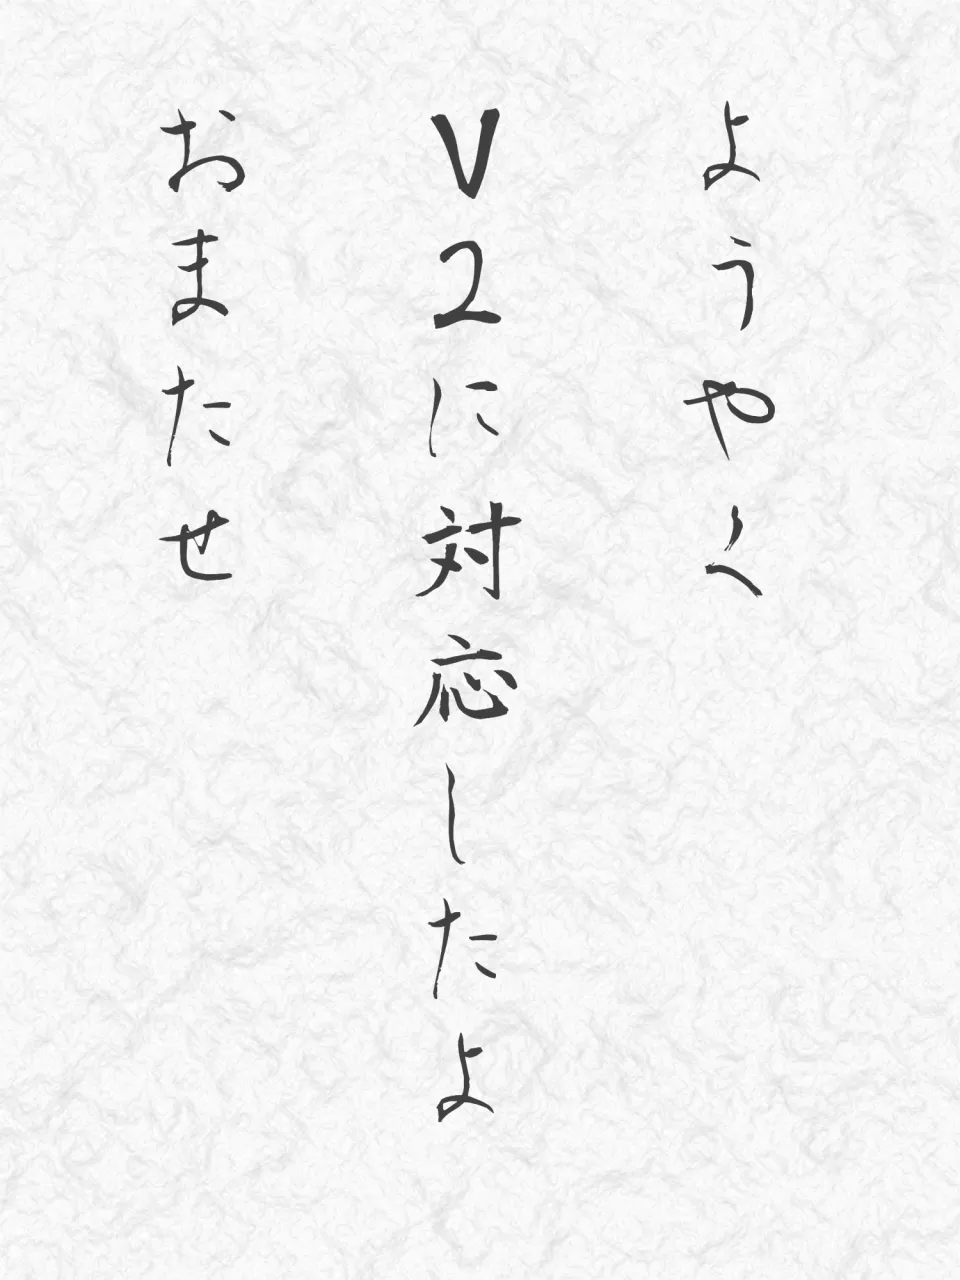 ようやく
V2に対応したよ
おまたせ